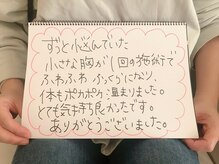 ずっと悩んでいた
小さな胸が1回の施術で
ふわふわ ふっくらになり、
体もポカポカ温まりました。
とても気持ち良かったです。
ありがとうございました。